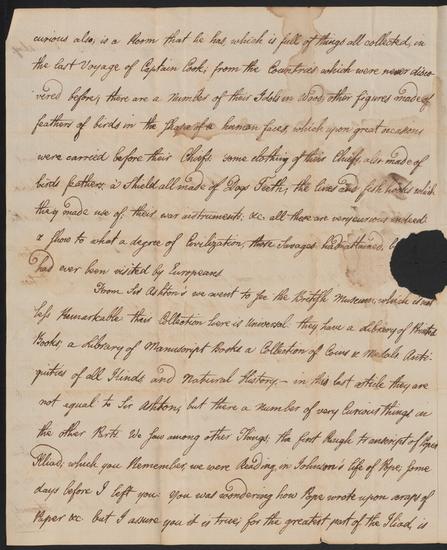 curious also, is a Room that he has, which is full of things all collected, in
the last Voyage of Captain Cook; from the Countries which were never disco-
vered before; there are a Number of their Idols in Wood, other figures made of
feathers of birds in the shape of a human faces, which upon great occasions
were carried before their Chiefs: some clothing of their Chiefs, also made of
birds feathers; a Shield all made of Dogs Teeth; the lines and fish hooks which
they made use of; their war instruments; &c. all these are very curious indeed
& show to what a degree of Civilization, those Savages had attained,
had ever been visited by Europeans
From Sir Ashton's we went to see the British Museum, which is no
less Remarkable their Collection here is Universal. they have a Library of Printed
Books, a Library of Manuscript Books a Collection of Coins & Medals Anti-
quities of all Kinds and Natural History,— in this last article they are
not equal to Sir Ashton, but there a number of very Curious things in
the other Parts. We saw among other Things, the first Rough transcript of Popes
Iliad; which you Remember, we were Reading, in Johnson's life of Pope, some
days before I left you. you was wondering how Pope wrote upon scraps of
Paper &c. but I assure you it is true; for the greatest part of the Iliad is